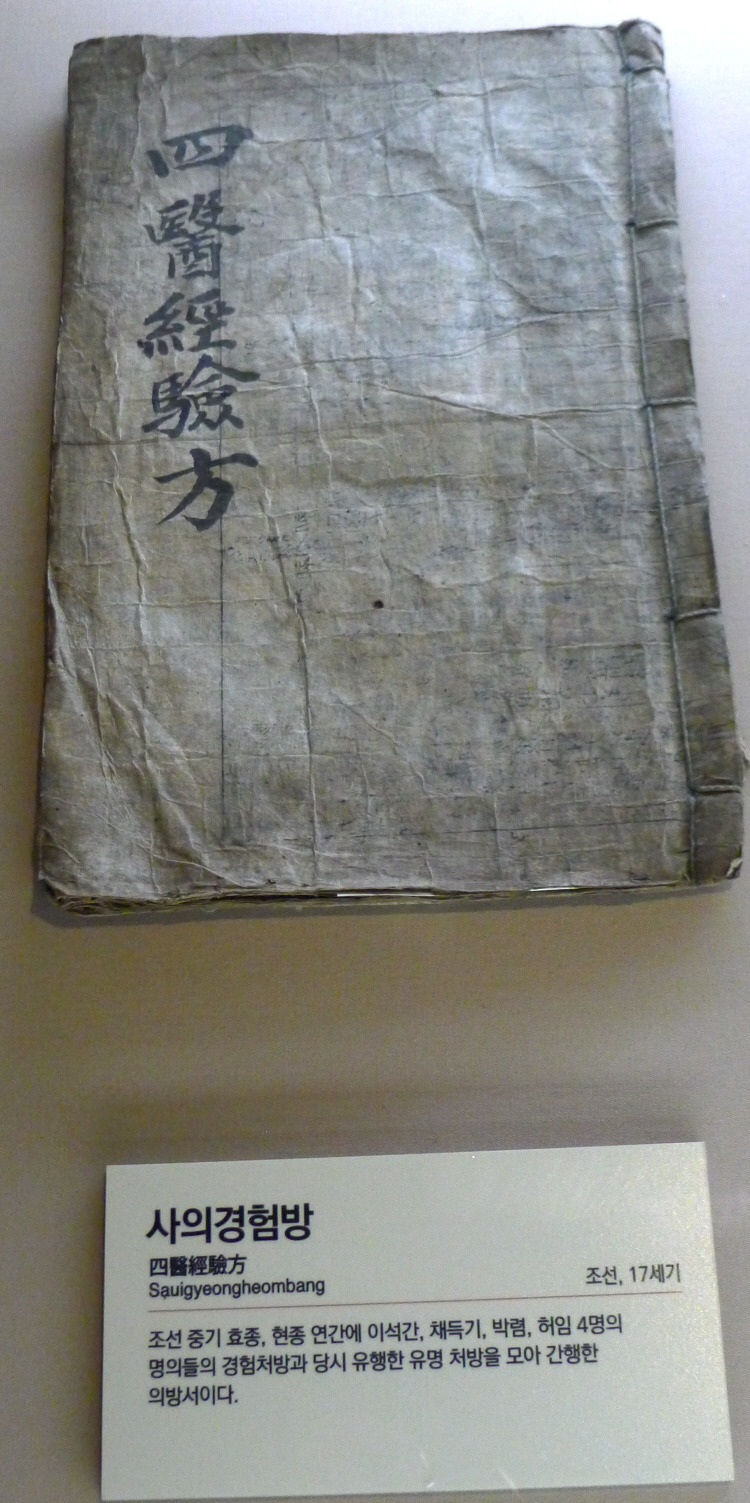 四醫經驗方
사의경험방
四醫經驗方
Sauigyeongheombang
조선, 17세기
조선 중기 효종, 현종 연간에 이석간, 채득기, 박렴, 허임 4명의
명의들의 경험처방과 당시 유행한 유명 처방을 모아 간행한
의방서이다.